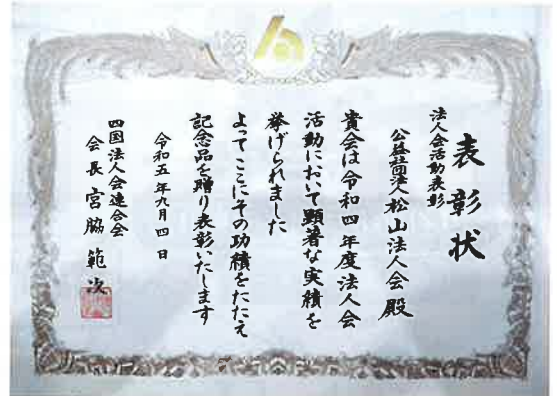 表彰状
法人会活動表彰
公益社団法人松山法人会殿
貴会は令和四年度法人会
活動において顕著な実績を
挙げられました
よってここにその功績をたたえ
記念品を贈り表彰いたします
令和五年九月四日
四国法人会連合会
会長宮脇範次